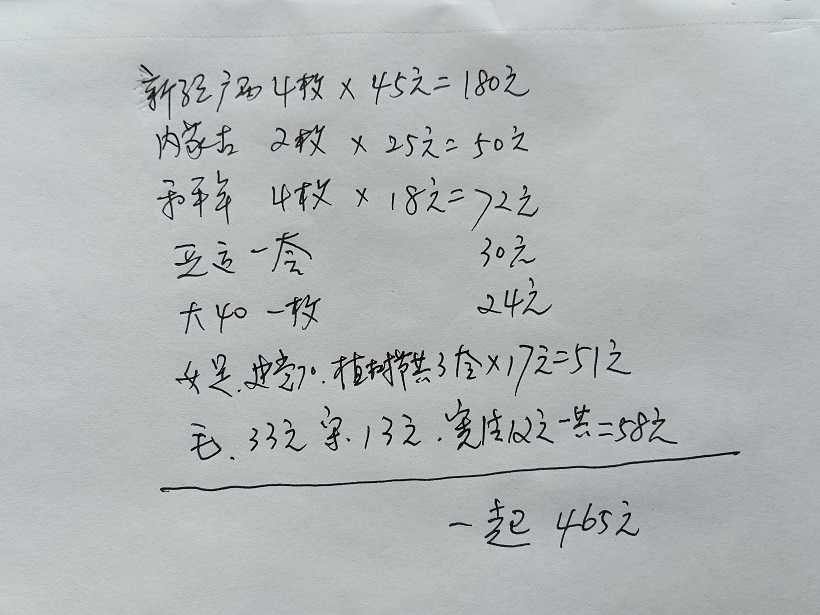 新疆广西 4枚 × 45元=180元
内蒙古 2枚 × 25元=50元
和平年 4枚 × 18元=72元
亚运一套 30元
大40一枚 24元
女足.建党70.植树节共3套×17元=51元
毛.33元 宋.13元.宪法12元一共=58元
一起 465元